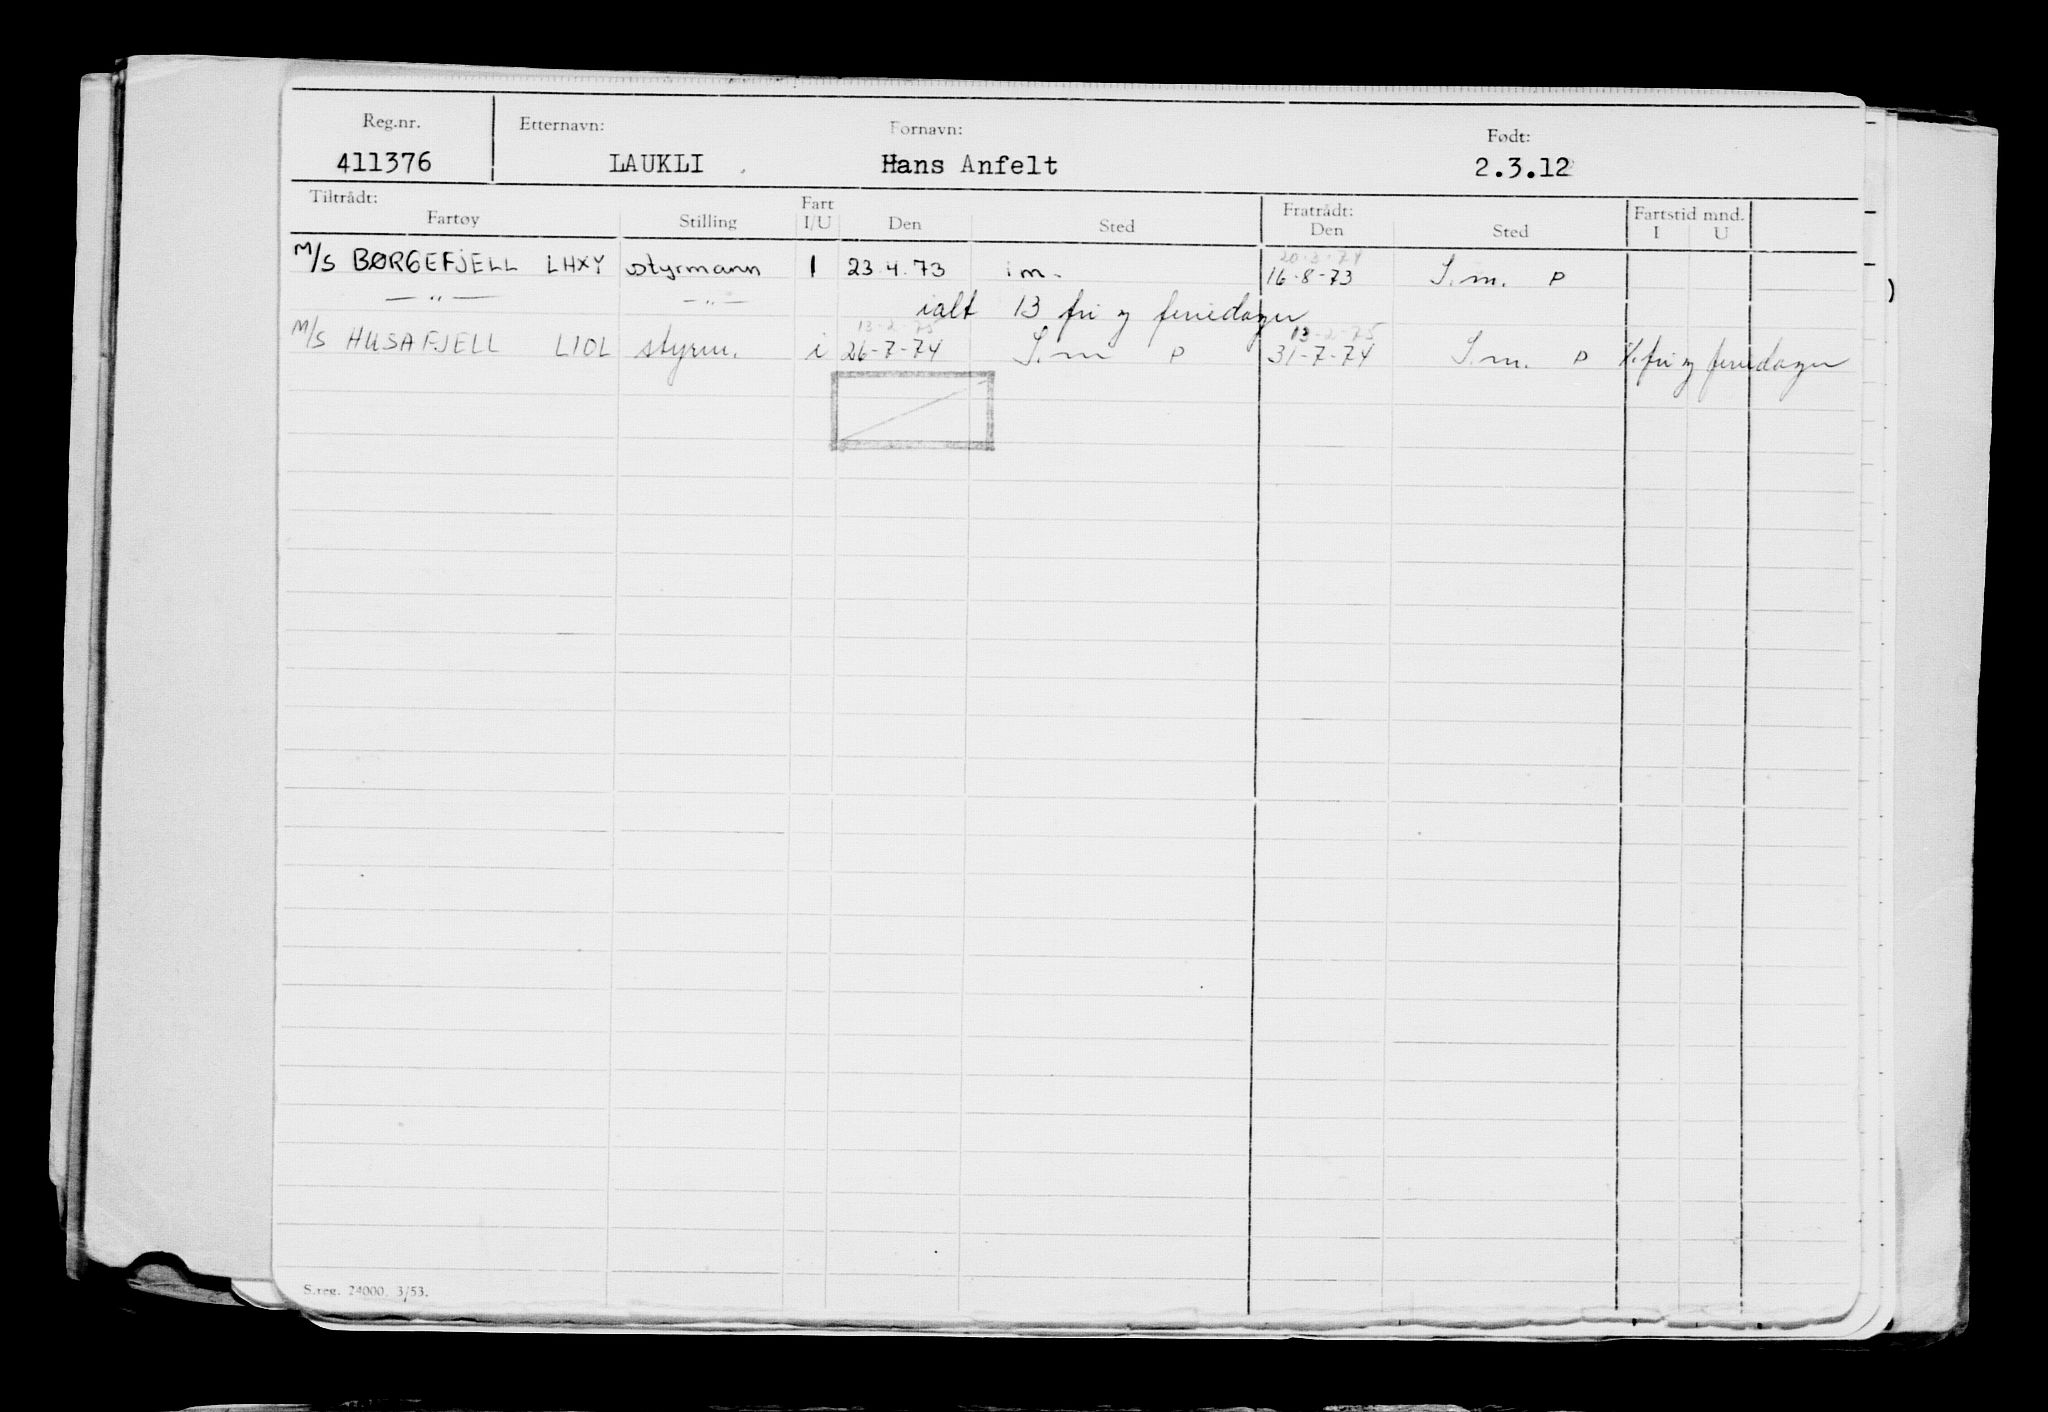 Reg.nr. Etternavn: Fornavn: Født:
411376 LAUKLI Hans Anfelt 2.3.12
Tiltrådt: Fartøy Stilling Fart I/U Den Sted Fratrådt: Den Sted Fartstid mnd. I U
20-3-74
M/S BØRGEFJELL LHXY styrmann I 23.4.73 i m. 16-8-73 S.m. P
—"— —"— ialt 13 fri og feriedager
13-2-75 13-2-75
M/S HUSAFJELL LIOL styrm. i 26-7-74 S.m P 31-7-74 S.m. P %. fri og feriedager
S.reg. 24000. 3/53.